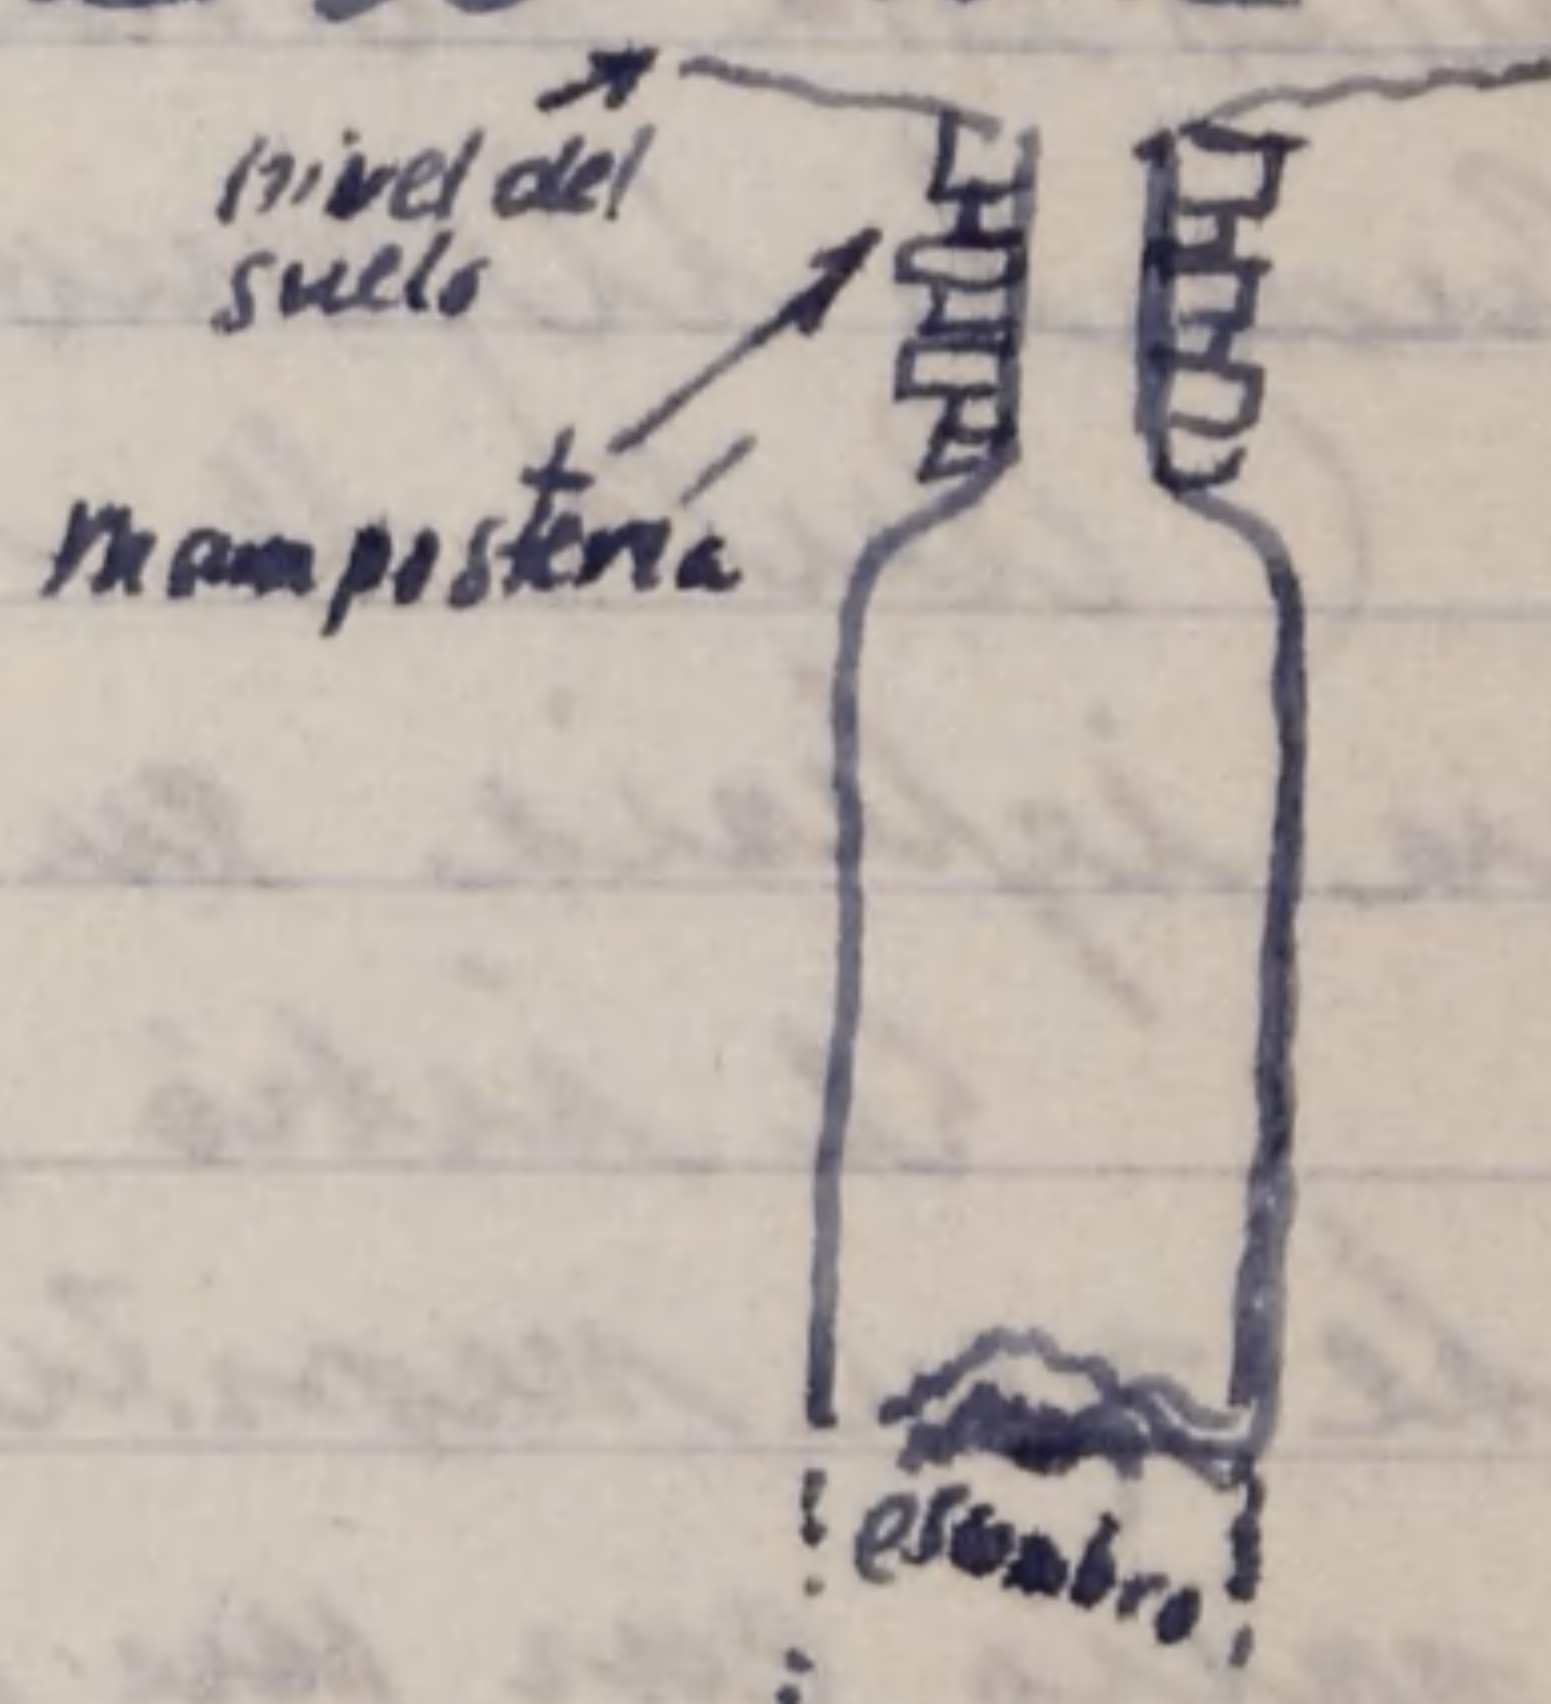 nivel del
suelo
mampostería
escombro